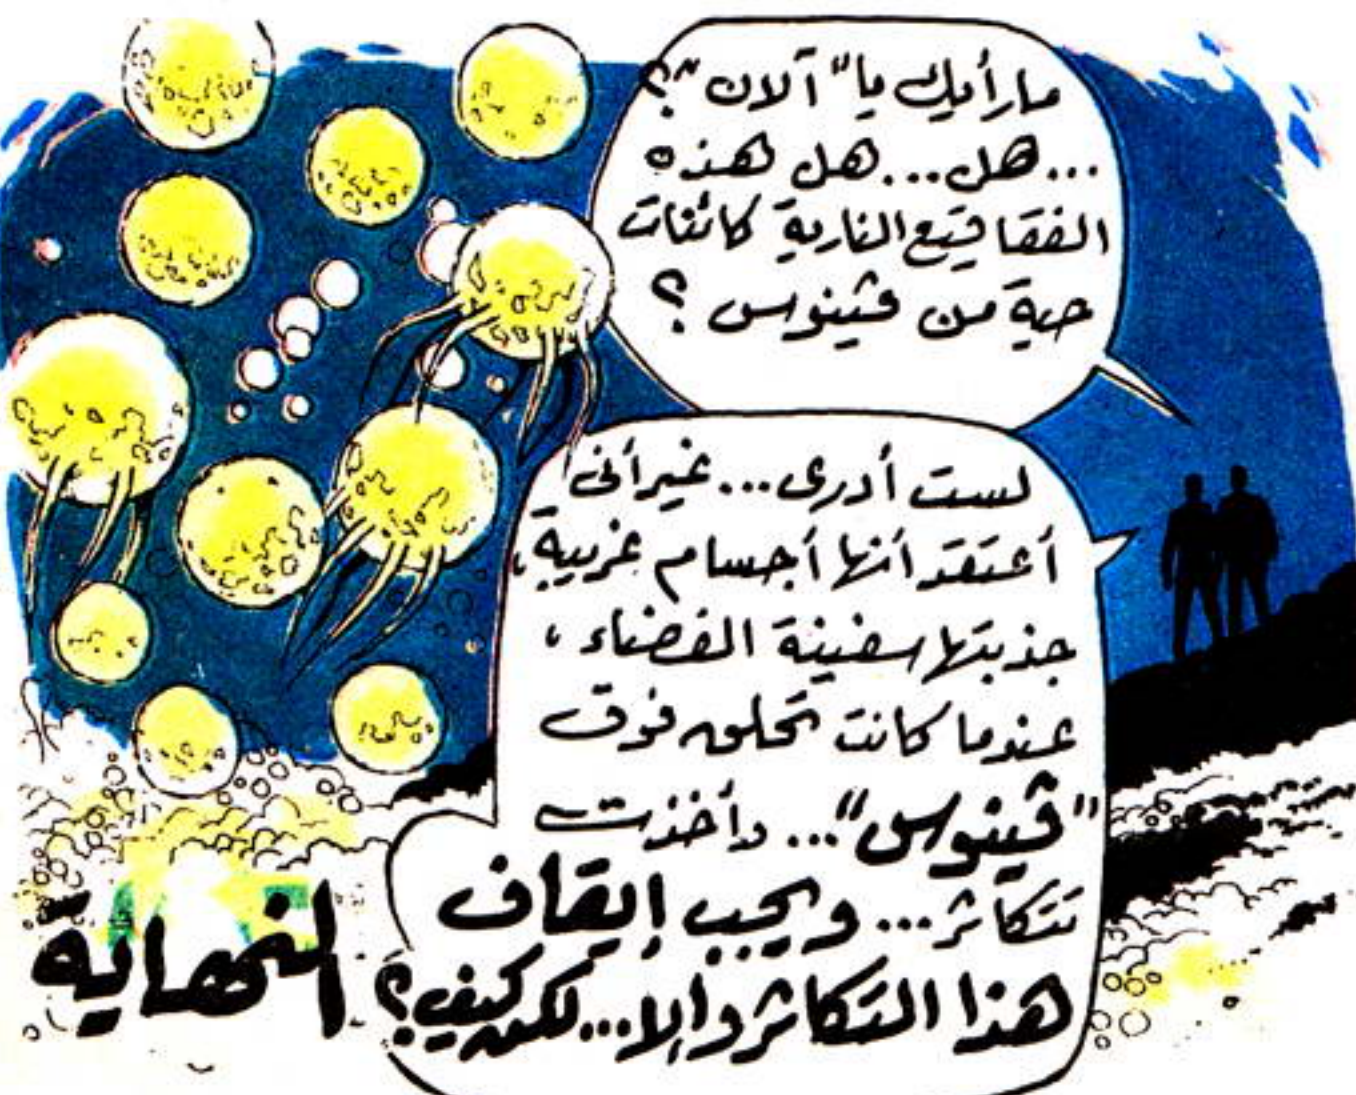 ما رأيك يا "آلان"؟
...هل...هل هذه
الفقاقيع النارية كائنات
حية من ڤينوس ؟
لست أدرى...غير أنى
أعتقد أنها أجسام غريبة،
جذبتها سفينة الفضاء ،
عندما كانت تحلق فوق
"ڤينوس"... وأخذت
تتكاثر... ويجب إيقاف
هذا التكاثر وإلا...لكن كيف؟
النهاية